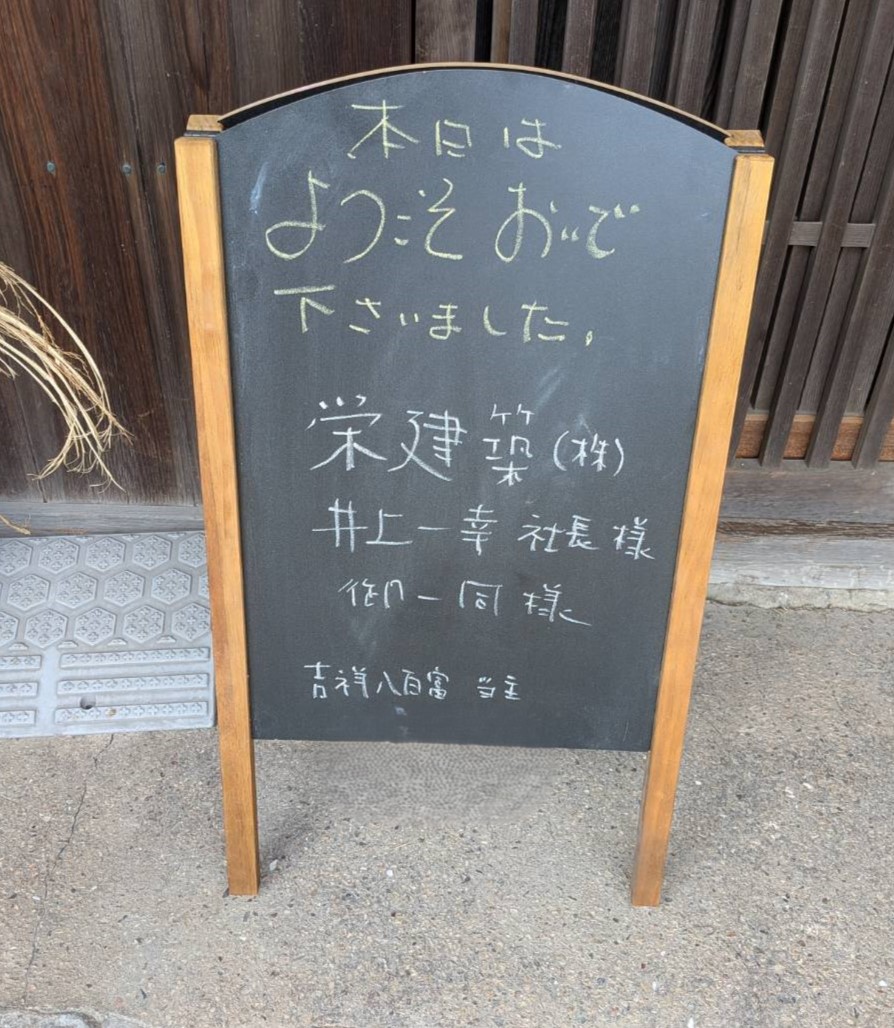 本日は
ようこそ おいで
下さいました。
栄建築(株)
井上一幸 社長 様
御一同様
吉祥八百富 当主